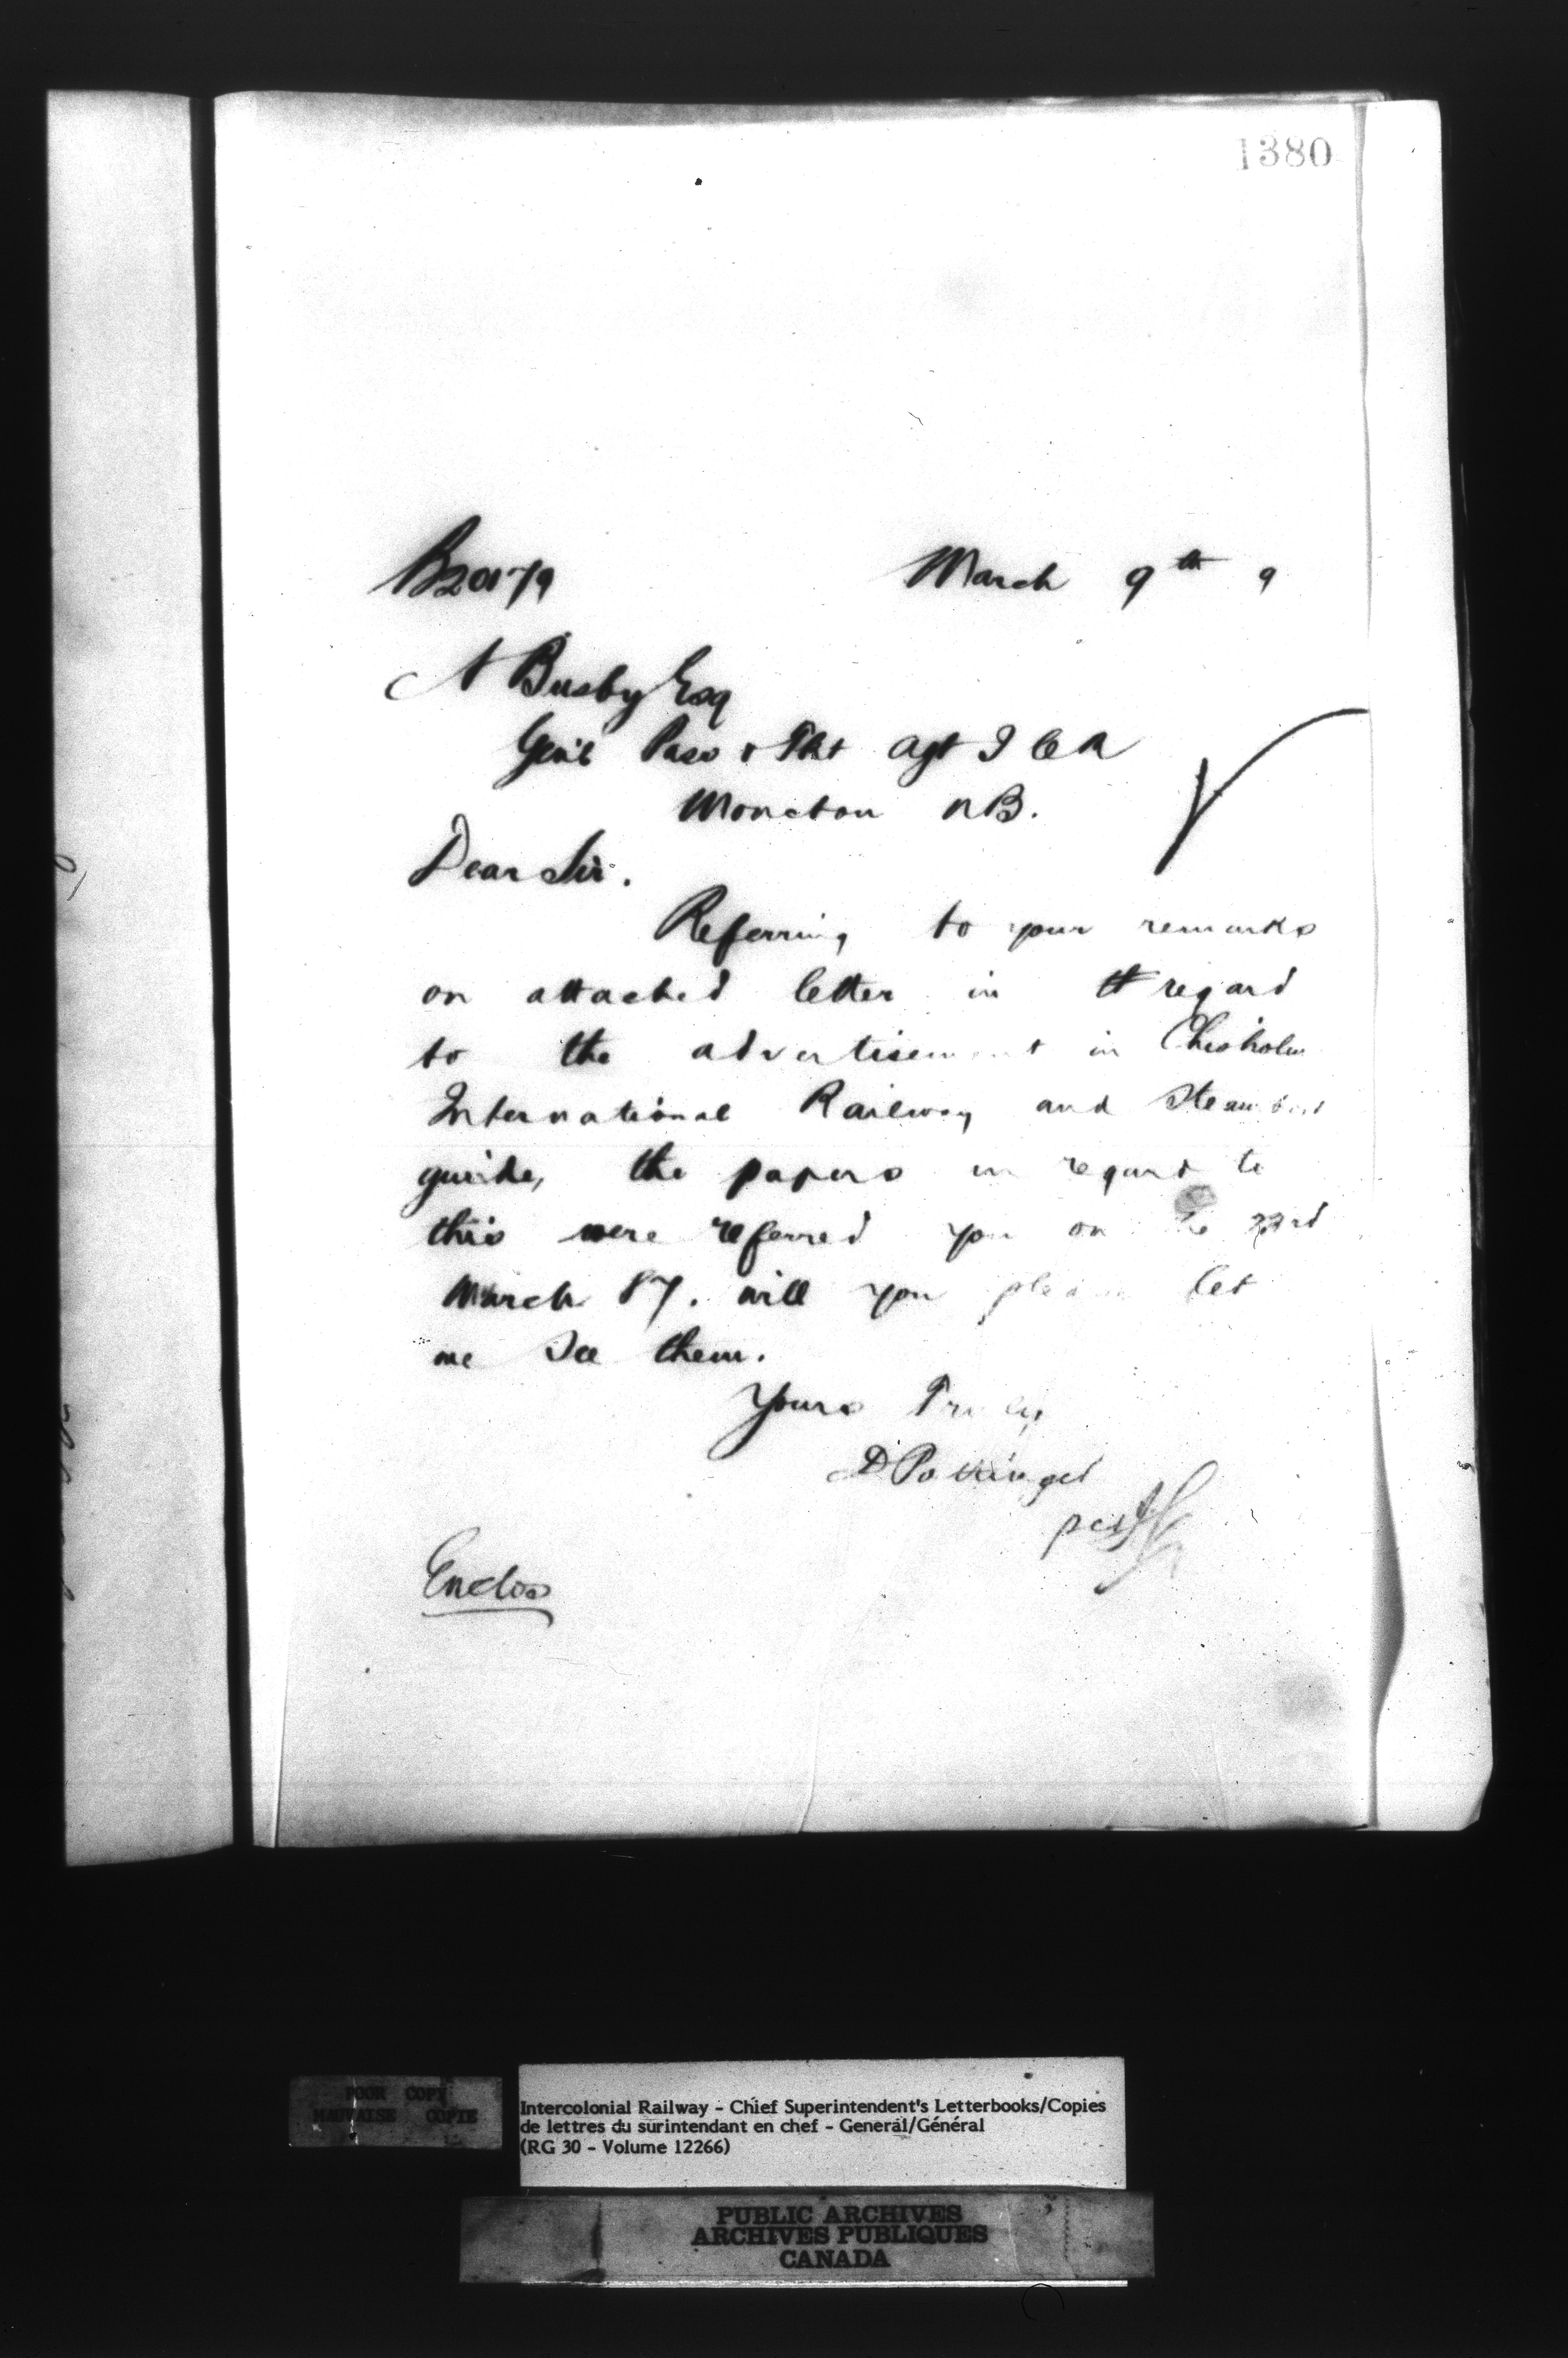 1380
B20179
March 9th 9
A Busby Esq
Gen'l Pass & Frt Agt I C R
Moncton NB.
Dear Sir.
Referring to your remarks
on attached letter in regard
to the advertisement in Chisholm
International Railway and Steamboat
guide, the papers in regard to
this were referred you on the 23rd
March 87. will you please let
me see them.
Yours Truly
D Pottinger
per
Enclos
POOR COPY
MAUVAISE COPIE
Intercolonial Railway - Chief Superintendent's Letterbooks/Copies
de lettres du surintendant en chef - General/Général
(RG 30 - Volume 12266)
PUBLIC ARCHIVES
ARCHIVES PUBLIQUES
CANADA